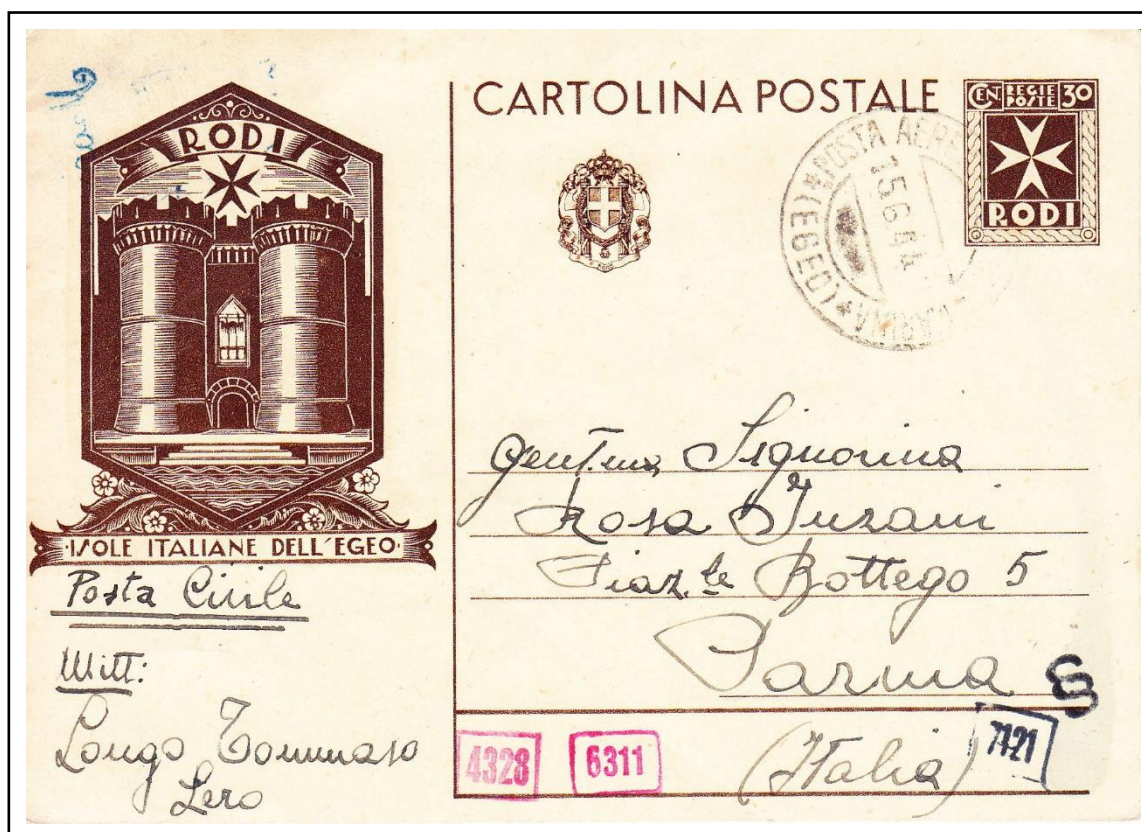 RODI
ISOLE ITALIANE DELL'EGEO
Posta Civile
Mitt:
Longo Tommaso
Lero
CARTOLINA POSTALE
CEN REGIE POSTE 30
RODI
POSTA AEREA
15.6.44
(EGEO)
Gent.ma Signorina
Rosa
Piaz.le Bottego 5
Parma
(Italia)
4328
6311
7121